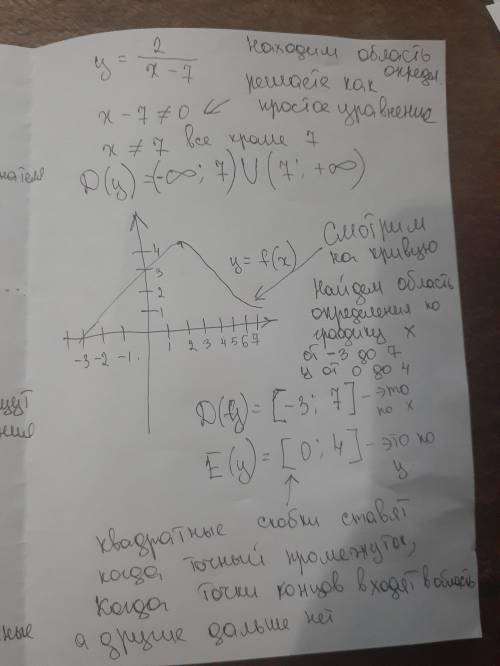 y = 2 / x - 7
Находим область
определ.
решаете как
простое уравнение
x - 7 ≠ 0
x ≠ 7 все кроме 7
D(y) = (-∞; 7) ∪ (7; +∞)
4
3
2
1
-3 -2 -1 1 2 3 4 5 6 7
y = f(x)
Смотрим
на кривую
Найдем область
определения по
графику x
от -3 до 7
y от 0 до 4
D(y) = [-3; 7] - это
по x
E(y) = [0; 4] - это по
y
квадратные скобки ставят
когда точный промежуток,
Когда точки концов входят в область
а другие дальше нет